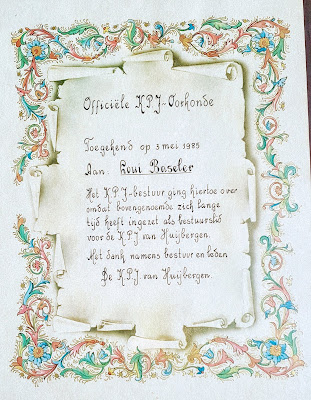 Officiële K.P.J-Oorkonde
Toegekend op 3 mei 1985
Aan: Loui Baseler
Het K.P.J-bestuur ging hiertoe over
omdat bovengenoemde zich lange
tijd heeft ingezet als bestuurslid
voor de K.P.J. van Huijbergen.
Met dank namens bestuur en leden
De K.P.J. van Huijbergen.